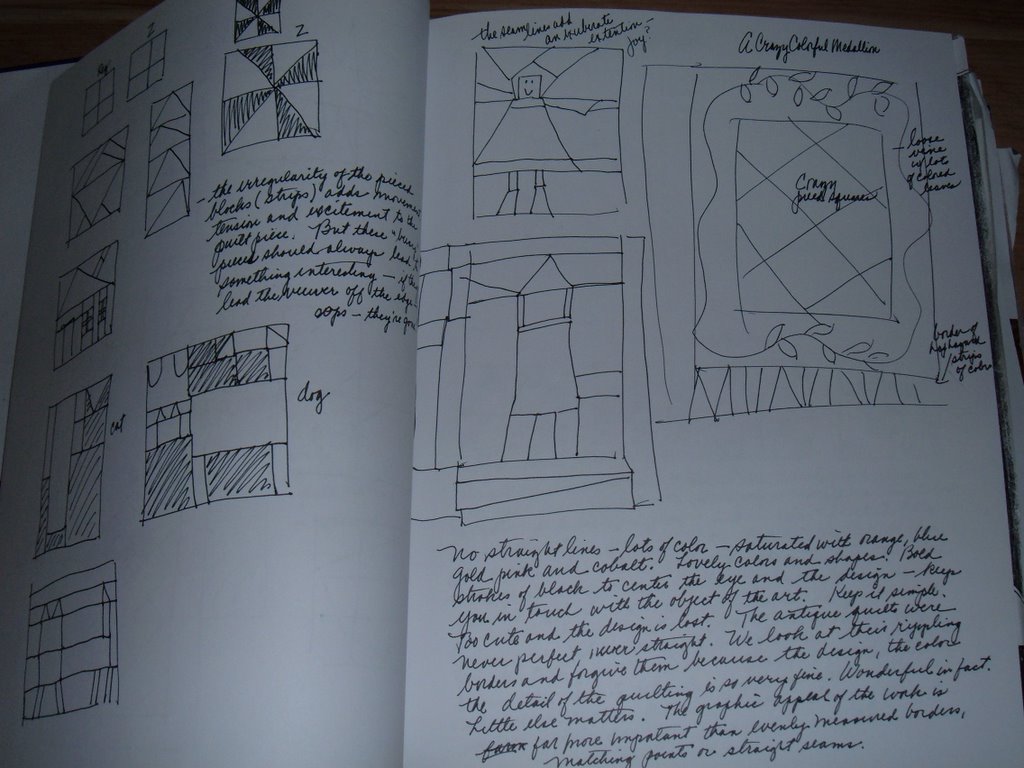 2
the irregularity of the pieced
blocks (strips) adds movement
tension and excitement to the
quilt piece. But these
pieces should always lead
something interesting – if
lead the viewer off the edge
oops – they're gone
dog
cat
the seamlines add
an exuberate
extention –
joy?
A Crazy Colorful Medallion
Crazy
pieced squares
loose
vine
w/ lots
of colored
leaves
border of
strips
of color
No straight lines – lots of color – saturated with orange, blue
gold pink and cobalt. Lovely colors and shapes! Bold
strokes of black to center the eye and the design – keep
you in touch with the object of the art. Keep it simple.
Too cute and the design is lost. The antique quilts were
never perfect, never straight. We look at their rippling
borders and forgive them because the design, the color
the detail of the quilting is so very fine. Wonderful in fact.
Little else matters. The graphic appeal of the work is
far more important than evenly measured borders,
matching points or straight seams.